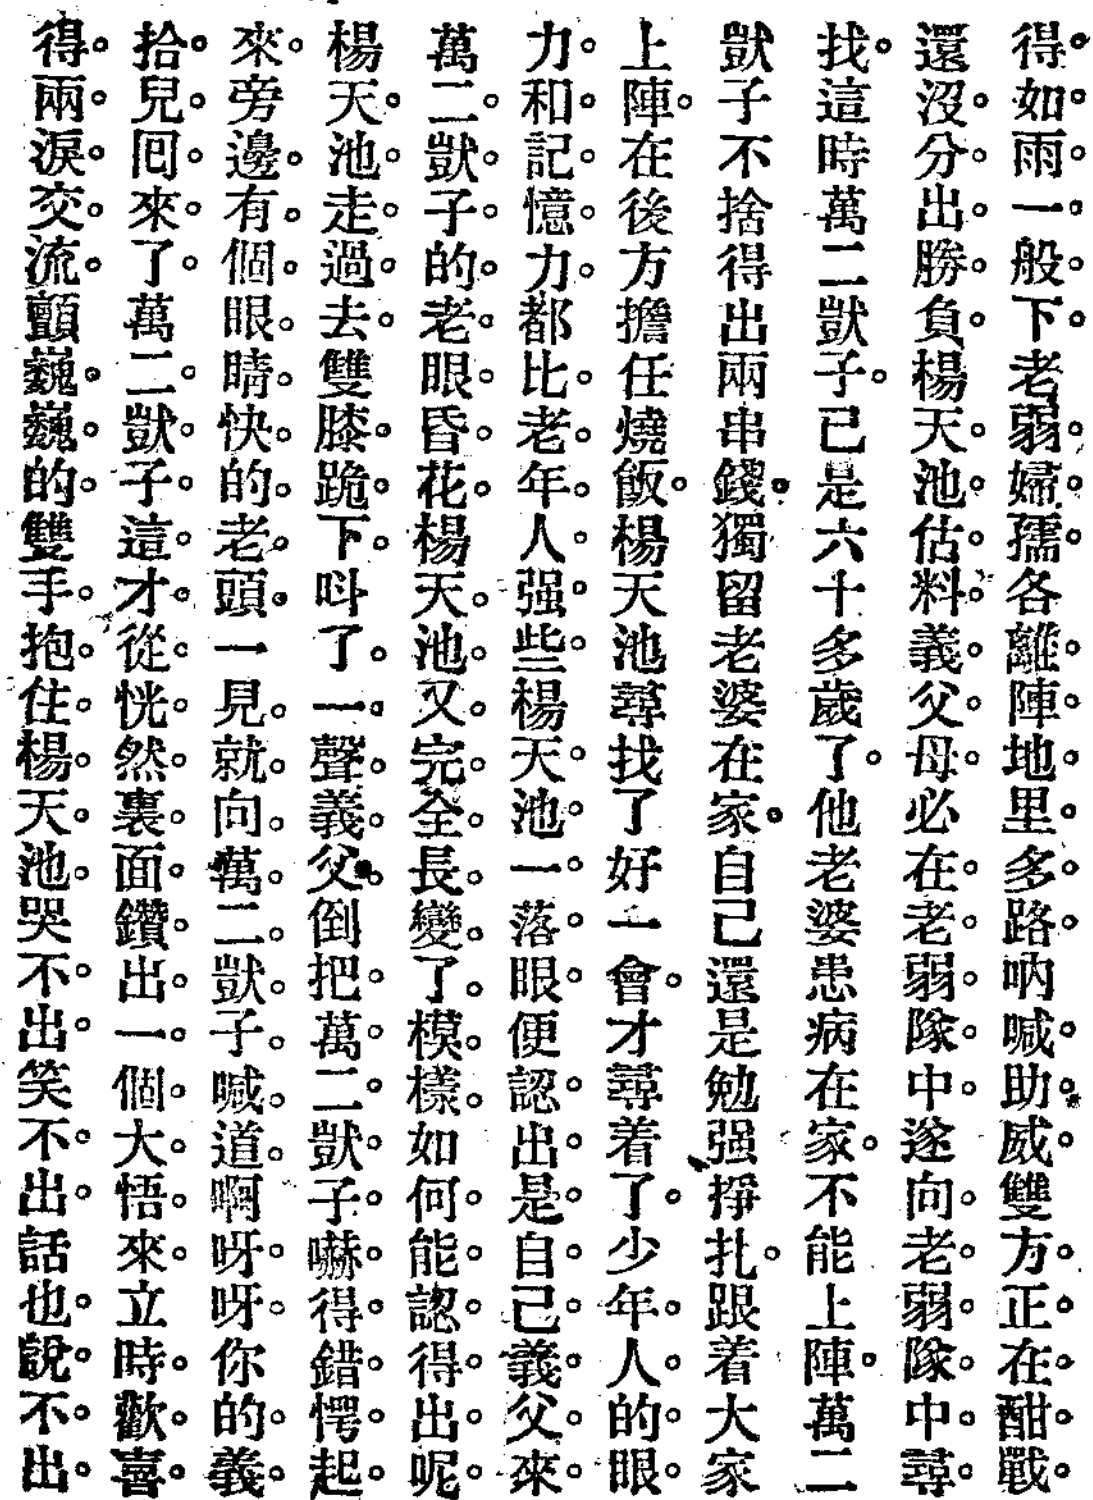 得如雨一般下老弱婦孺各離陣地里多路吶喊助威雙方正在酣戰
還沒分出勝負楊天池估料義父母必在老弱隊中遂向老弱隊中尋
找這時萬二獃子已是六十多歲了他老婆患病在家不能上陣萬二
獃子不捨得出兩串錢獨留老婆在家自己還是勉强掙扎跟着大家
上陣在後方擔任燒飯楊天池尋找了好一會才尋着了少年人的眼
力和記憶力都比老年人强些楊天池一落眼便認出是自己義父來
萬二獃子的老眼昏花楊天池又完全長變了模樣如何能認得出呢
楊天池走過去雙膝跪下呌了一聲義父倒把萬二獃子嚇得錯愕起
來旁邊有個眼睛快的老頭一見就向萬二獃子喊道啊呀呀你的義
拾兒囘來了萬二獃子這才從恍然裏面鑽出一個大悟來立時歡喜
得兩淚交流顫巍巍的雙手抱住楊天池哭不出笑不出話也說不出